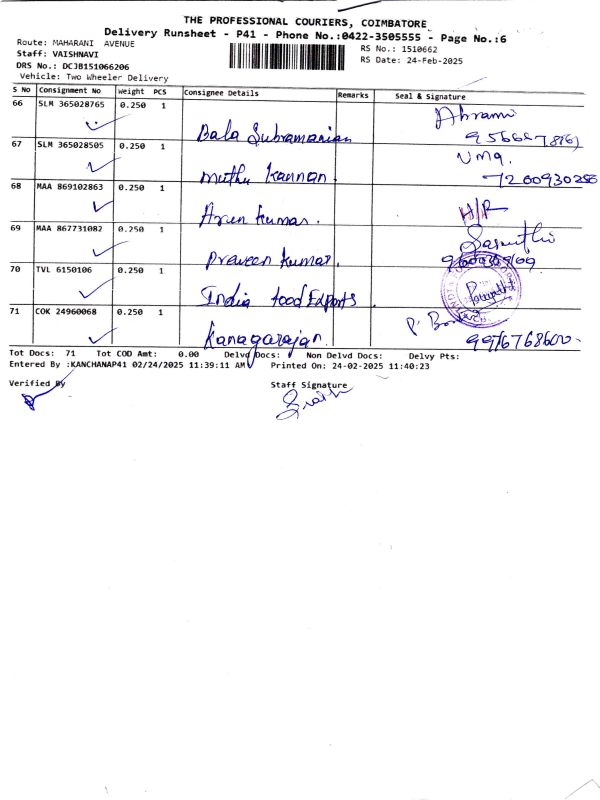 THE PROFESSIONAL COURIERS, COIMBATORE
Delivery Runsheet - P41 - Phone No.:0422-3505555 - Page No.:6
Route: MAHARANI AVENUE
Staff: VAISHNAVI
DRS No.: DCJB151066206
Vehicle: Two Wheeler Delivery
RS No.: 1510662
RS Date: 24-Feb-2025
S No Consignment No Weight PCS Consignee Details Remarks Seal & Signature
66 SLM 365028765 0.250 1 Bala Subramanian
67 SLM 365028505 0.250 1 Muthu Kannan. Uma. 7200930250
68 MAA 869102863 0.250 1 Arun Kumar. H/R
69 MAA 867731082 0.250 1 Praveen Kumar.
70 TVL 6150106 0.250 1 India food Exports
71 COK 24960068 0.250 1 Kanagarajan 9976768600
Tot Docs: 71 Tot COD Amt: 0.00 Delvd Docs: Non Delvd Docs: Delvy Pts:
Entered By :KANCHANAP41 02/24/2025 11:39:11 AM Printed On: 24-02-2025 11:40:23
Verified By Staff Signature